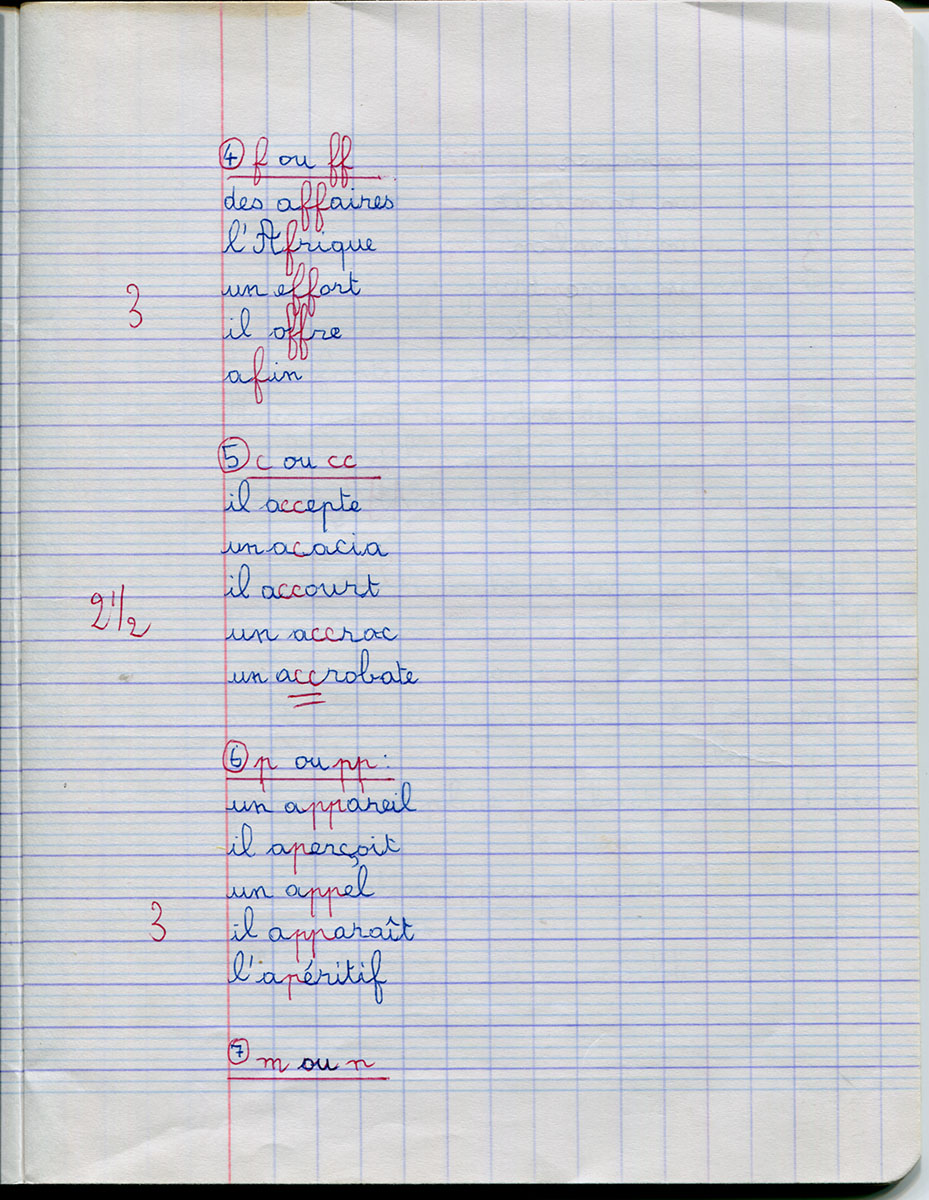 4 f ou ff
des affaires
l'Afrique
un effort
3
il offre
afin
5 c ou cc
il accepte
un acacia
il accourt
2 1/2
un accrac
un accrobate
6 p ou pp :
un appareil
il aperçoit
un appel
3
il apparaît
l'apéritif
7 m ou n